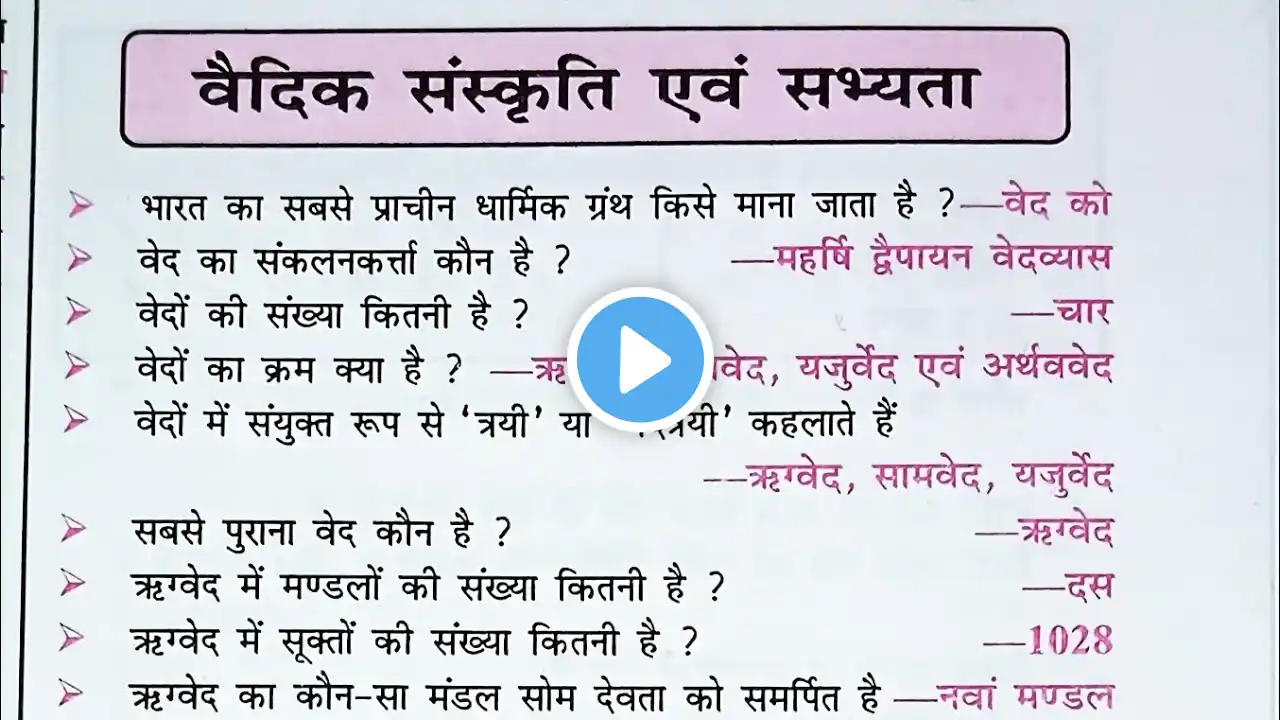 वैदिक संस्कृति एवं सभ्यता
भारत का सबसे प्राचीन धार्मिक ग्रंथ किसे माना जाता है ? —वेद को
वेद का संकलनकर्त्ता कौन है ? —महर्षि द्वैपायन वेदव्यास
वेदों की संख्या कितनी है ? —चार
वेदों का क्रम क्या है ? — यजुर्वेद एवं अर्थववेद
वेदों में संयुक्त रूप से ‘त्रयी’ या कहलाते हैं
—ऋग्वेद, सामवेद, यजुर्वेद
सबसे पुराना वेद कौन है ? —ऋग्वेद
ऋग्वेद में मण्डलों की संख्या कितनी है ? —दस
ऋग्वेद में सूक्तों की संख्या कितनी है ? —1028
ऋग्वेद का कौन-सा मंडल सोम देवता को समर्पित है —नवां मण्डल